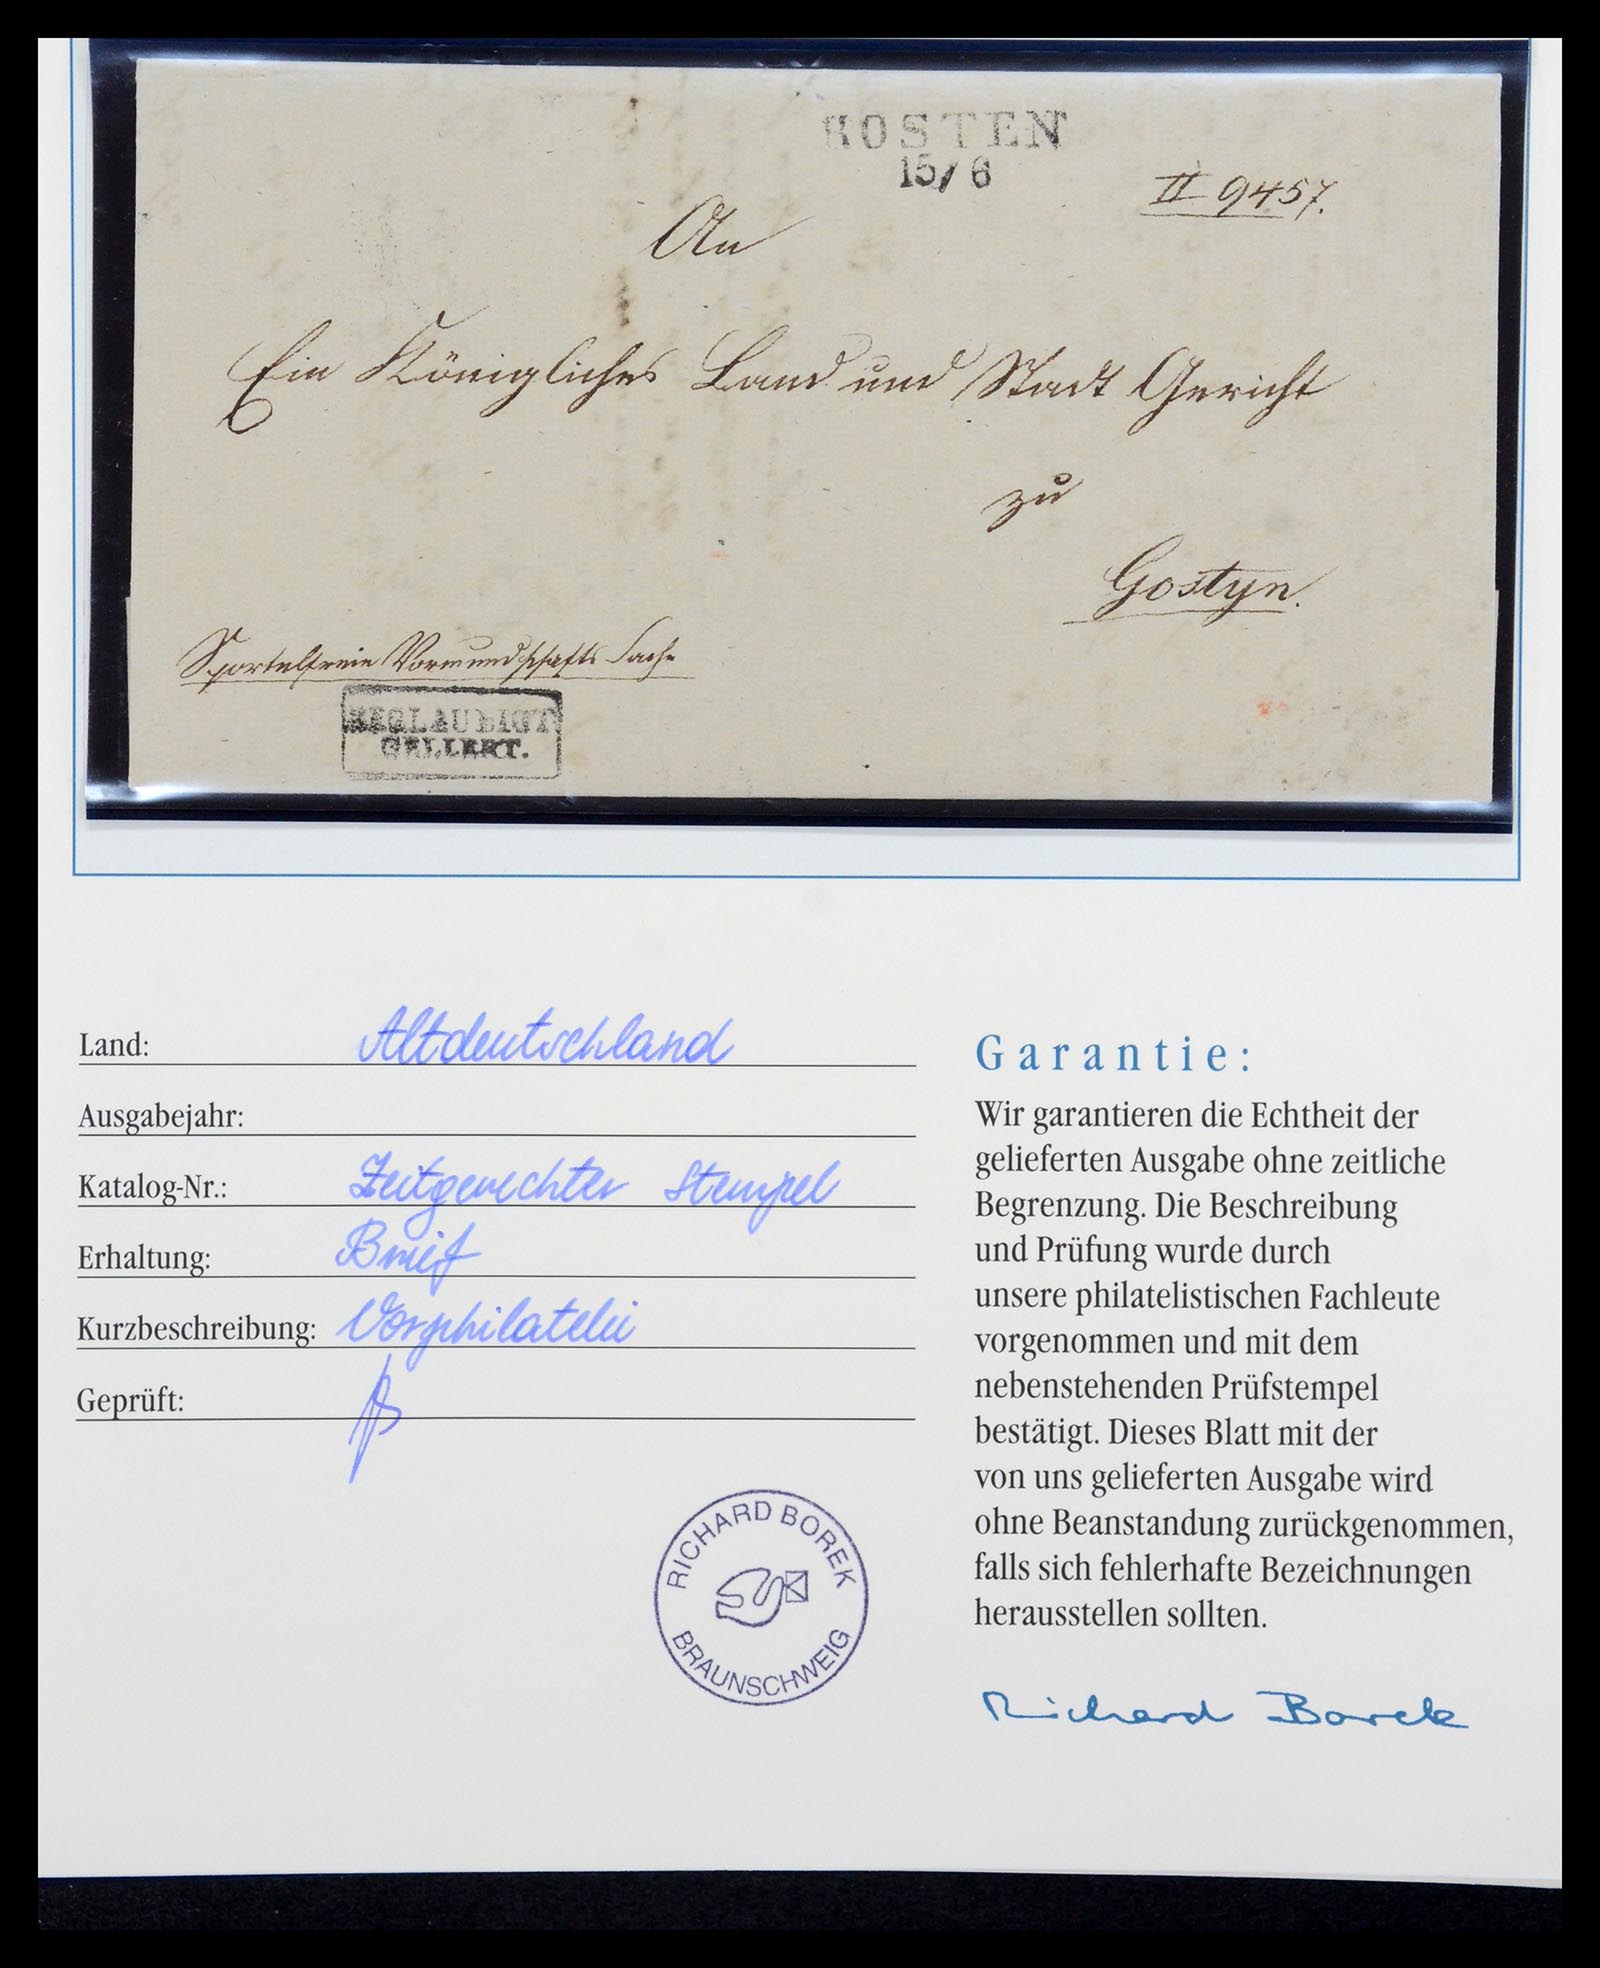 KOSTEN
15/6
II 9457.
An
Ein Königliches Land und Stadt Gericht
zu
Gostyn.
Sportelfreie Vormundschafts Sache
BEGLAUBIGT
GELLERT.
Land: Altdeutschland
Ausgabejahr:
Katalog-Nr.: Zeitgerechter Stempel
Erhaltung: Brief
Kurzbeschreibung: Vorphilatelie
Geprüft:
RICHARD BOREK
BRAUNSCHWEIG
Garantie:
Wir garantieren die Echtheit der
gelieferten Ausgabe ohne zeitliche
Begrenzung. Die Beschreibung
und Prüfung wurde durch
unsere philatelistischen Fachleute
vorgenommen und mit dem
nebenstehenden Prüfstempel
bestätigt. Dieses Blatt mit der
von uns gelieferten Ausgabe wird
ohne Beanstandung zurückgenommen,
falls sich fehlerhafte Bezeichnungen
herausstellen sollten.
Richard Borek